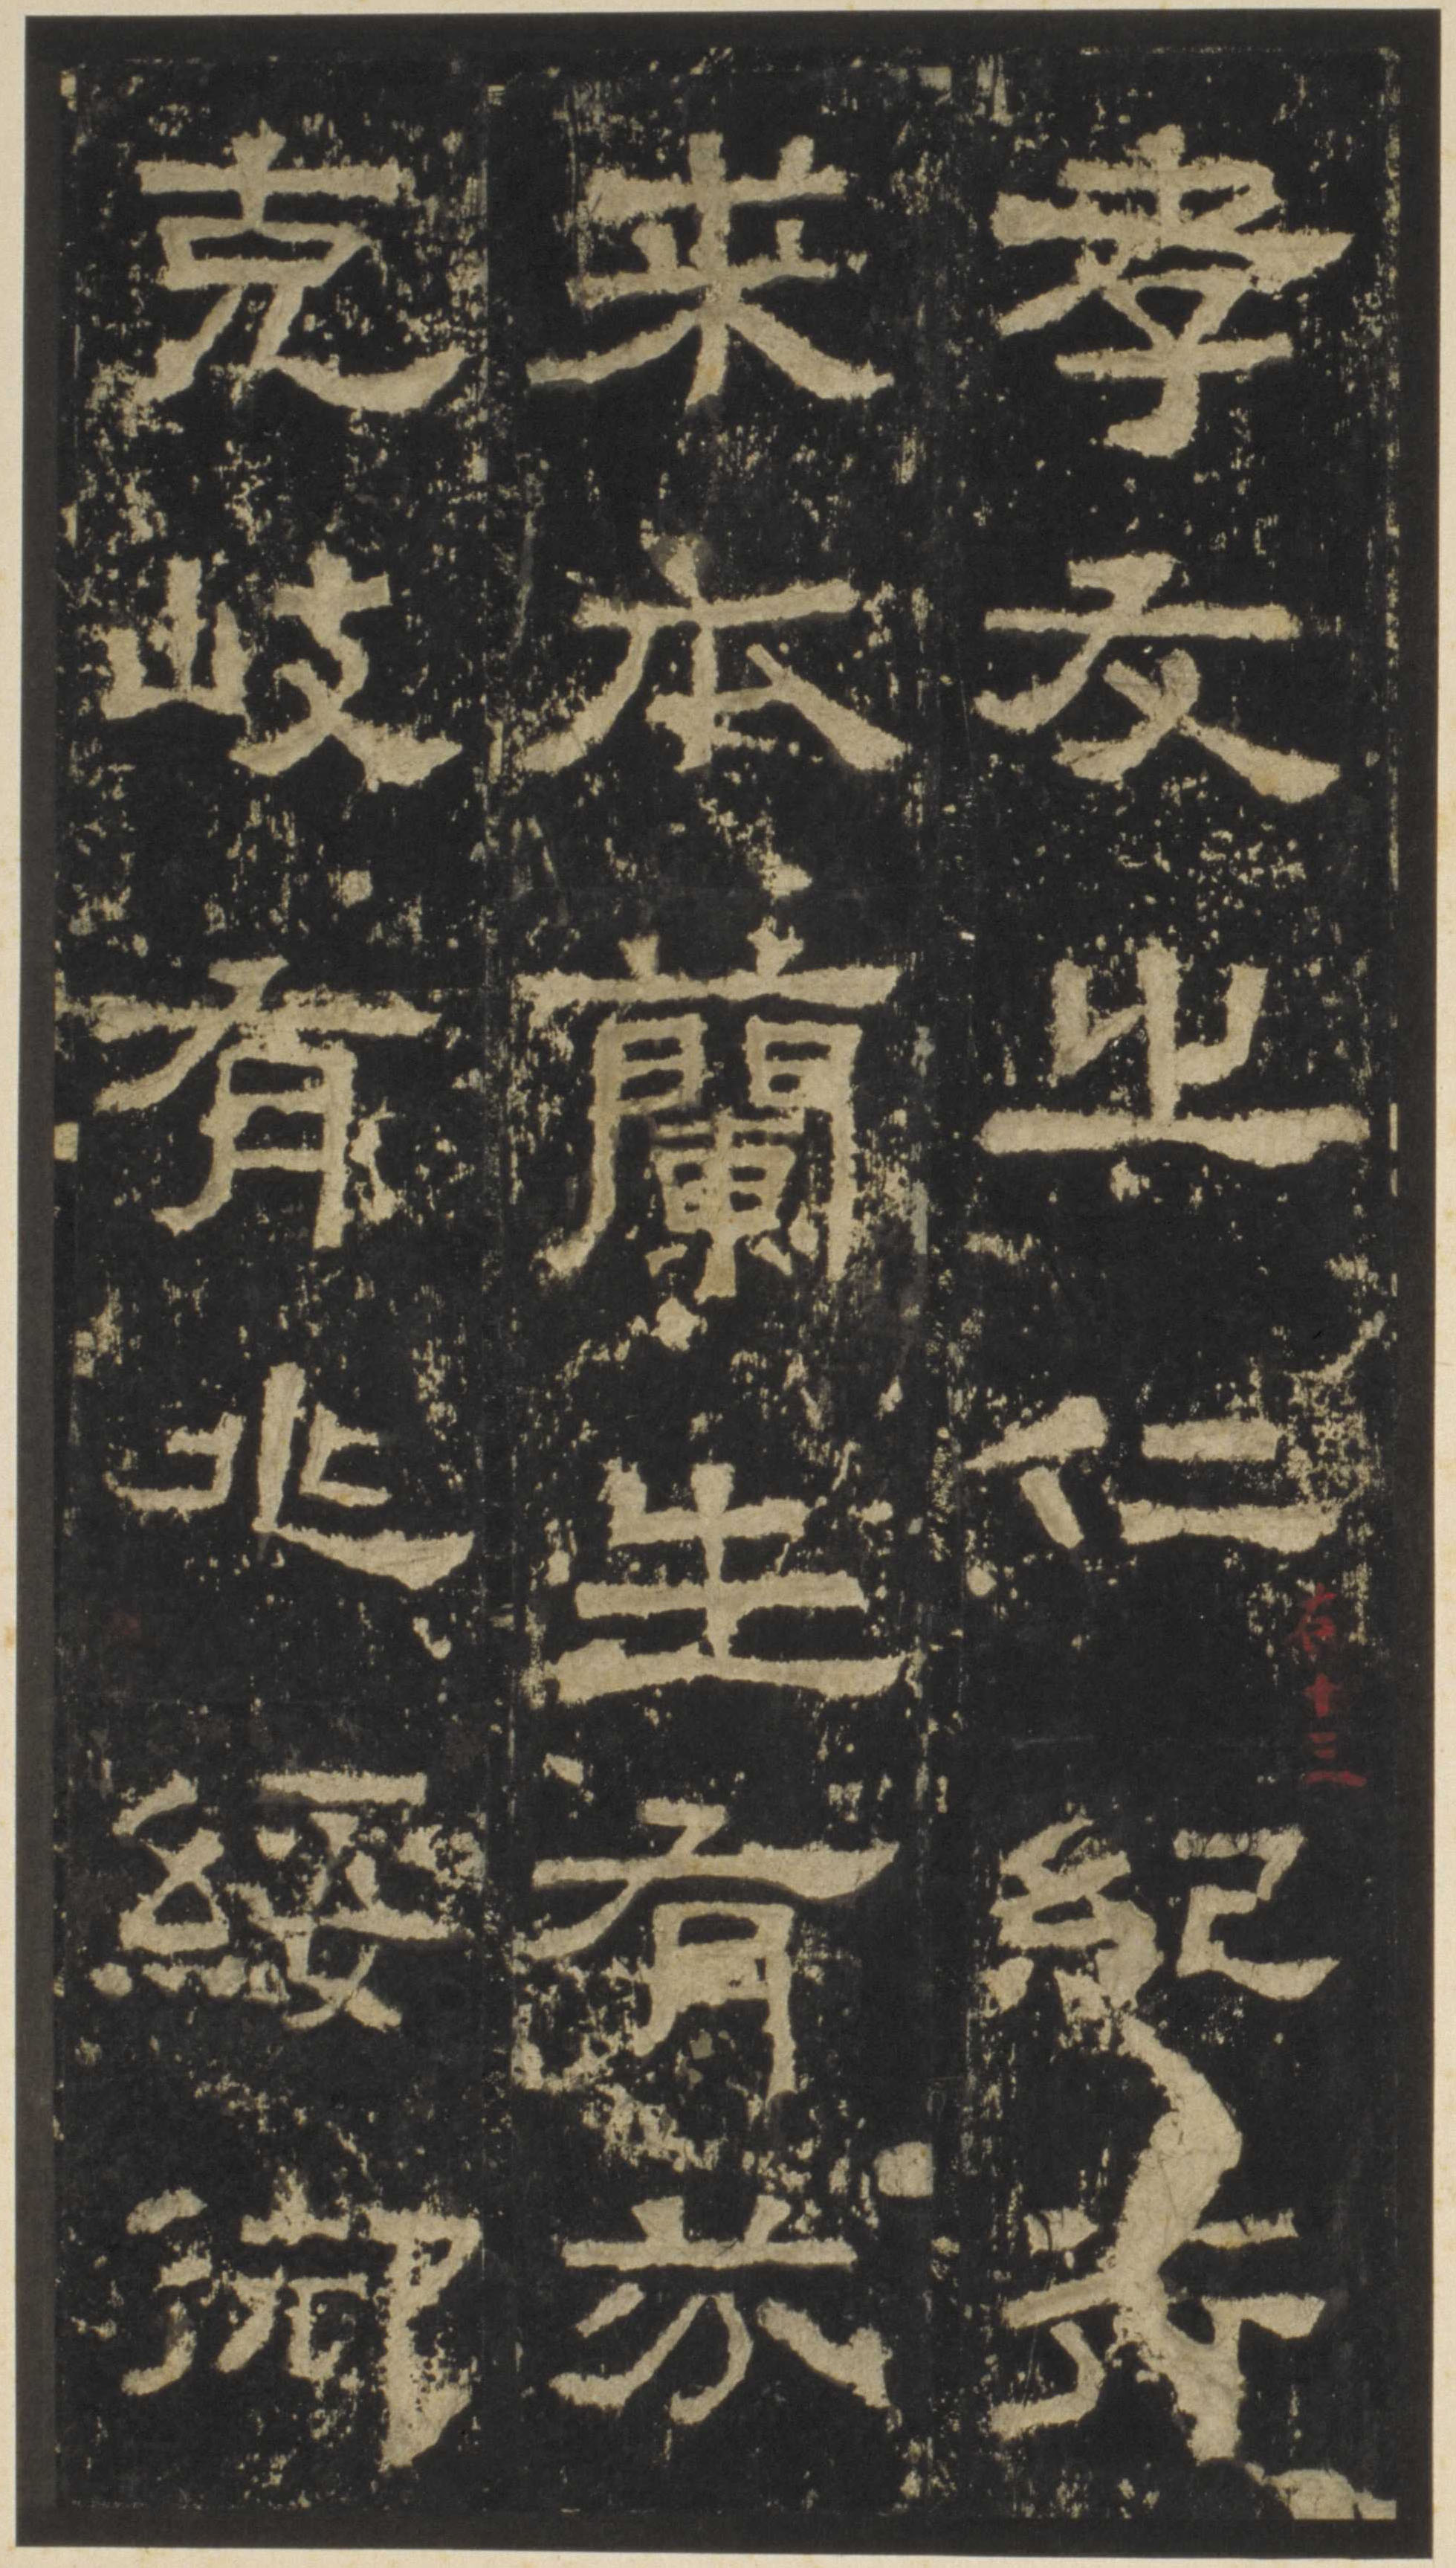 孝友之仁紀行
来本蘭生有芬
克岐有兆綏御
十三